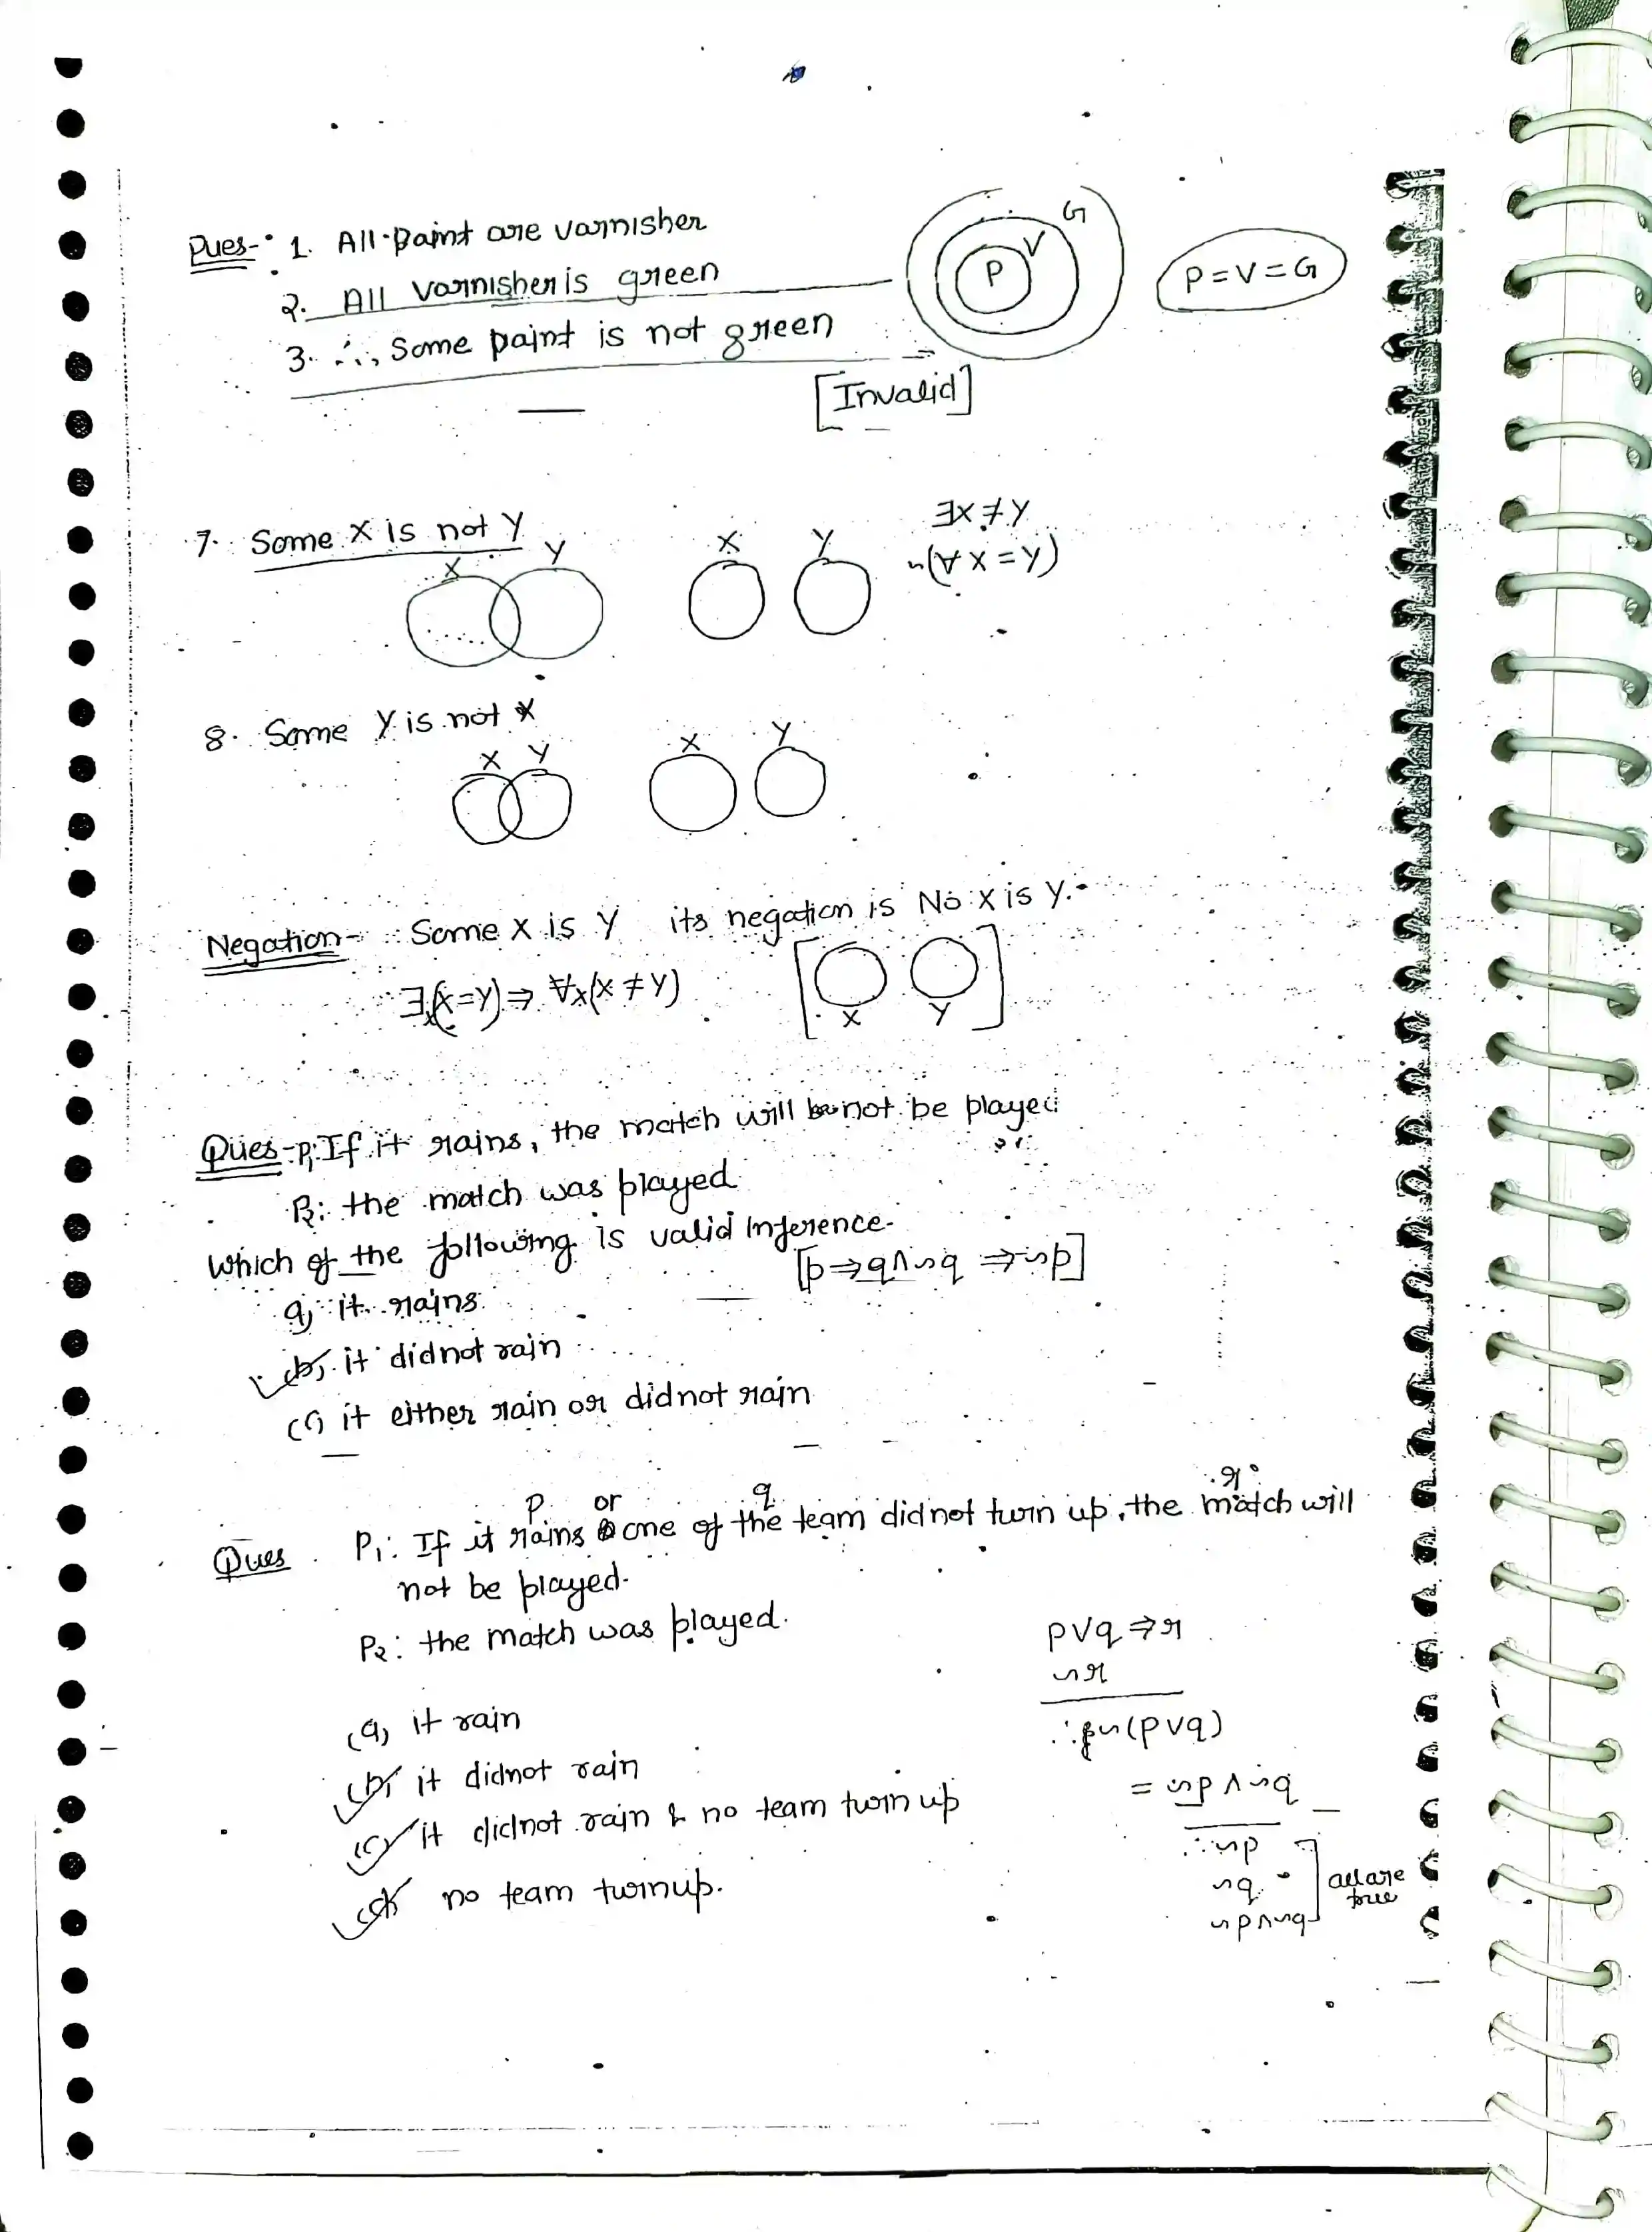 Ques- 1. All paint are varnisher
2. All varnisher is green
3. ∴, Some paint is not green
G
V
P
P = V = G
[Invalid]
7. Some X is not Y
X Y
X Y
∃X ≠ Y
~(∀ X = Y)
8. Some Y is not X
X Y
X Y
Negation- Some X is Y its negation is No X is Y.
∃x(X=Y) ⇒ ∀x(X ≠ Y)
X Y
Ques- P1: If it rains, the match will not be played
P2: the match was played
Which of the following is valid inference.
[p⇒q∧~q ⇒ ~p]
a) it rains
(b) it didnot rain
(c) it either rain or didnot rain
p or q r
Ques P1: If it rains one of the team didnot turn up, the match will
not be played.
P2: the match was played.
p∨q ⇒ r
~r
∴ ~(p∨q)
= ~p ∧ ~q
∴ ~p
~q
~p∧~q
all are
true
(a) it rain
(b) it didnot rain
(c) it didnot rain & no team turn up
(d) no team turnup.